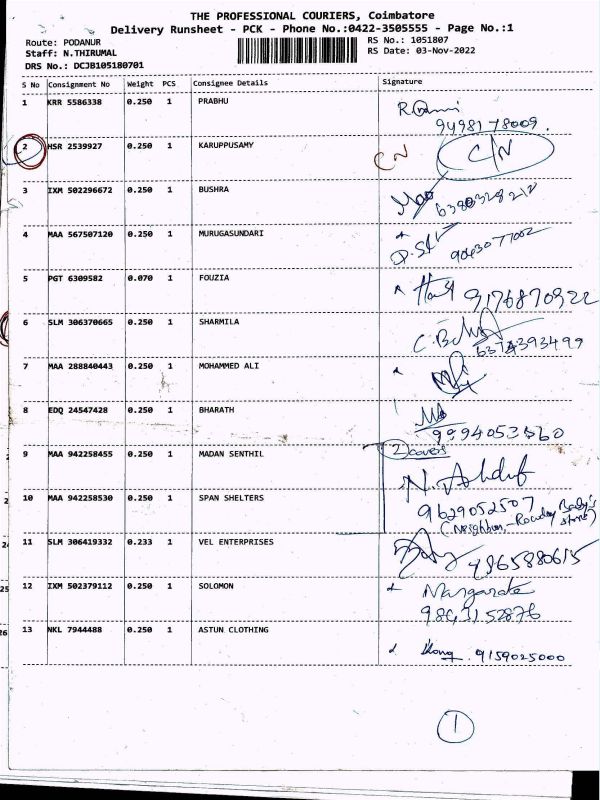 THE PROFESSIONAL COURIERS, Coimbatore
Delivery Runsheet - PCK - Phone No.:0422-3505555 - Page No.:1
Route: PODANUR
Staff: N.THIRUMAL
DRS No.: DCJB105180701
RS No.: 1051807
RS Date: 03-Nov-2022
S No Consignment No Weight PCS Consignee Details Signature
1 KRR 5586338 0.250 1 PRABHU
9498178009.
2 HSR 2539927 0.250 1 KARUPPUSAMY CN C/N
3 IXM 502296672 0.250 1 BUSHRA
4 MAA 567507120 0.250 1 MURUGASUNDARI
9043077002
5 PGT 6309582 0.070 1 FOUZIA
9176870922
6 SLM 306370665 0.250 1 SHARMILA
6374393499
7 MAA 288840443 0.250 1 MOHAMMED ALI
8 EDQ 24547428 0.250 1 BHARATH
9 MAA 942258455 0.250 1 MADAN SENTHIL 2 covers
10 MAA 942258530 0.250 1 SPAN SHELTERS
9629052507
11 SLM 306419332 0.233 1 VEL ENTERPRISES
9965880615
12 IXM 502379112 0.250 1 SOLOMON Margarate
13 NKL 7944488 0.250 1 ASTUN CLOTHING
9159025000
1